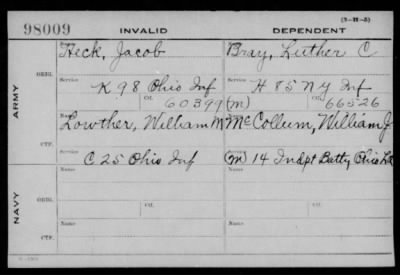 (3-H-5)
98009 INVALID DEPENDENT
ARMY
ORIG.
Heck, Jacob Bray, Luther C
Service Service
K 98 Ohio Inf H 85 N Y Inf
Ctf. 60399 (m) Ctf. 66526
CTF.
Name Name
Lowther, William M McCollum, William J
Service Service
C 25 Ohio Inf (m) 14 Indpt Batty Ohio L A
NAVY
ORIG.
Name Name
Service Ctf. Service Ctf.
CTF.
Name Name
Service Service